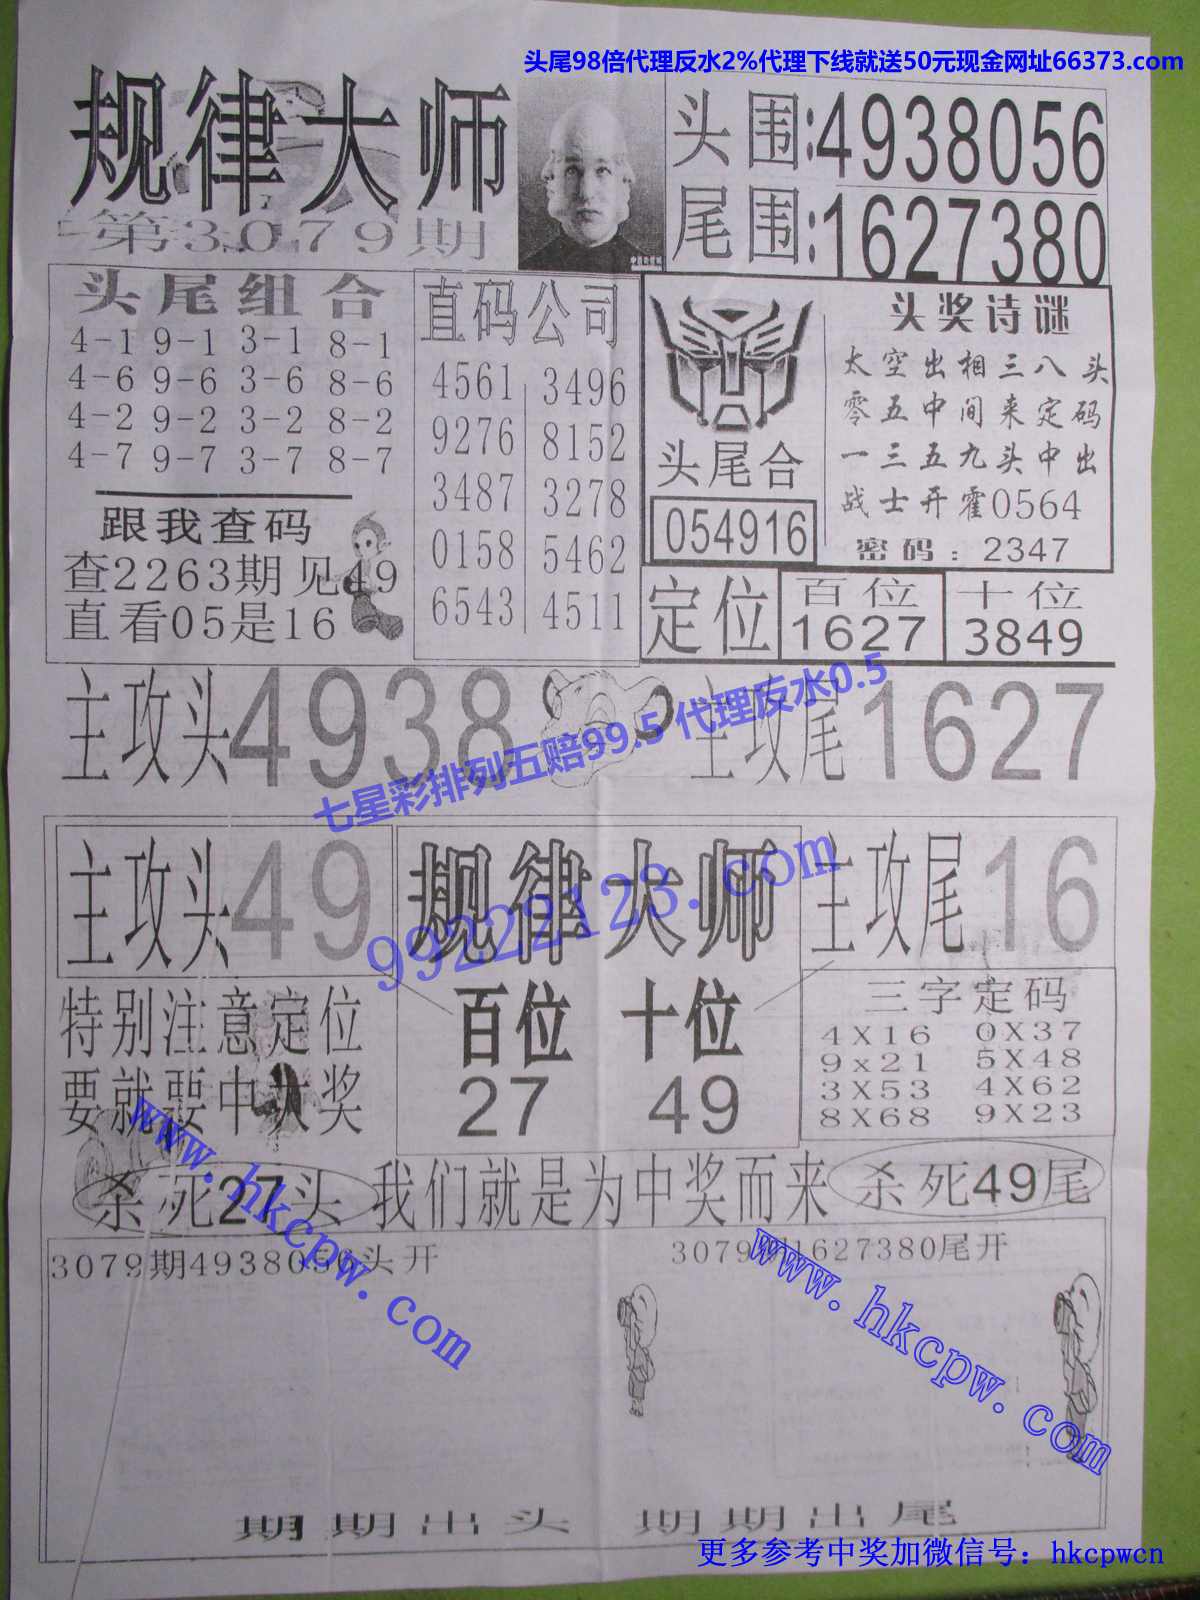 头尾98倍代理反水2%代理下线就送50元现金网址66373.com
规律大师
第3079期
头围:4938056
尾围:1627380
头尾组合
4-1 9-1 3-1 8-1
4-6 9-6 3-6 8-6
4-2 9-2 3-2 8-2
4-7 9-7 3-7 8-7
跟我查码
查2263期见49
直看05是16
直码公司
4561 3496
9276 8152
3487 3278
0158 5462
6543 4511
头尾合
054916
头奖诗谜
太空出相三八头
零五中间来定码
一三五九头中出
战士开霍0564
密码:2347
定位
百位
1627
十位
3849
主攻头4938
主攻尾1627
七星彩排列五赔99.5 代理反水0.5
99222123.com
主攻头49
规律大师
主攻尾16
特别注意定位
要就要中大奖
百位 十位
27 49
三字定码
4X16 0X37
9x21 5X48
3X53 4X62
8X68 9X23
杀死27头
我们就是为中奖而来
杀死49尾
www.hkcpw.com
www.hkcpw.com
3079期4938056头开
3079期1627380尾开
期期出头
期期出尾
更多参考中奖加微信号：hkcpwcn